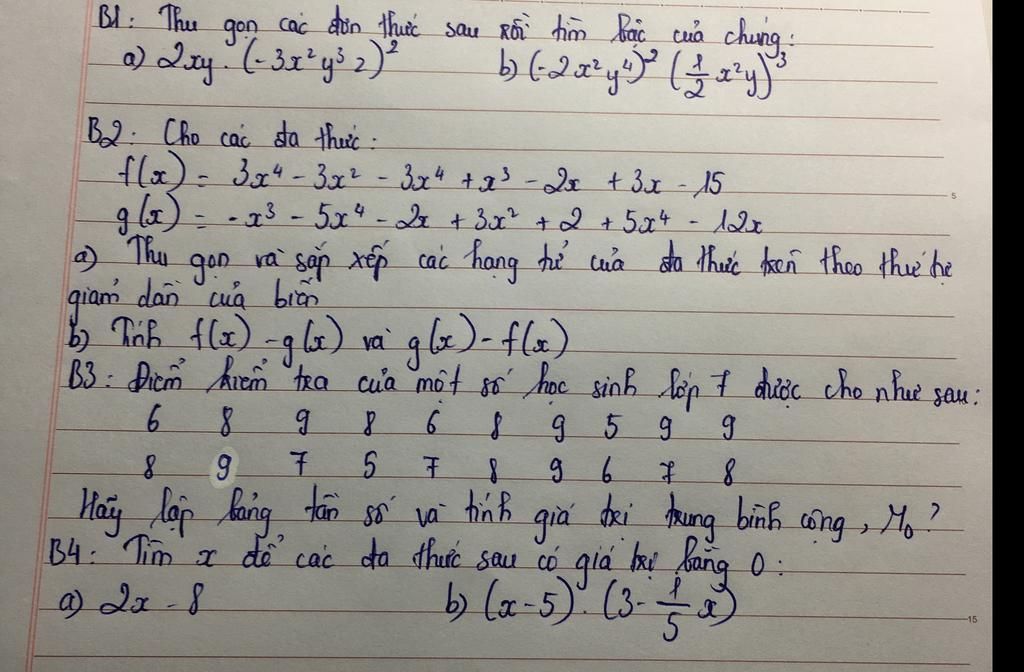 B1: Thu gọn các đơn thức sau rồi tìm bậc của chúng:
a) 2xy. (-3x²y³z)² b) (-2x²y⁴)² (1/2 x²y)³
B2: Cho các đa thức:
f(x) = 3x⁴ - 3x² - 3x⁴ + x³ - 2x + 3x - 15
g(x) = -x³ - 5x⁴ - 2x + 3x² + 2 + 5x⁴ - 12x
a) Thu gọn và sắp xếp các hạng tử của đa thức trên theo thứ tự
giảm dần của biến
b) Tính f(x) - g(x) và g(x) - f(x)
B3: Điểm kiểm tra của một số học sinh lớp 7 được cho như sau:
6 8 9 8 6 8 9 5 9 9
8 9 7 5 7 8 9 6 7 8
Hãy lập bảng tần số và tính giá trị trung bình cộng, M₀?
B4: Tìm x để các đa thức sau có giá trị bằng 0:
a) 2x - 8 b) (x-5). (3 - 1/5 x)
5
15